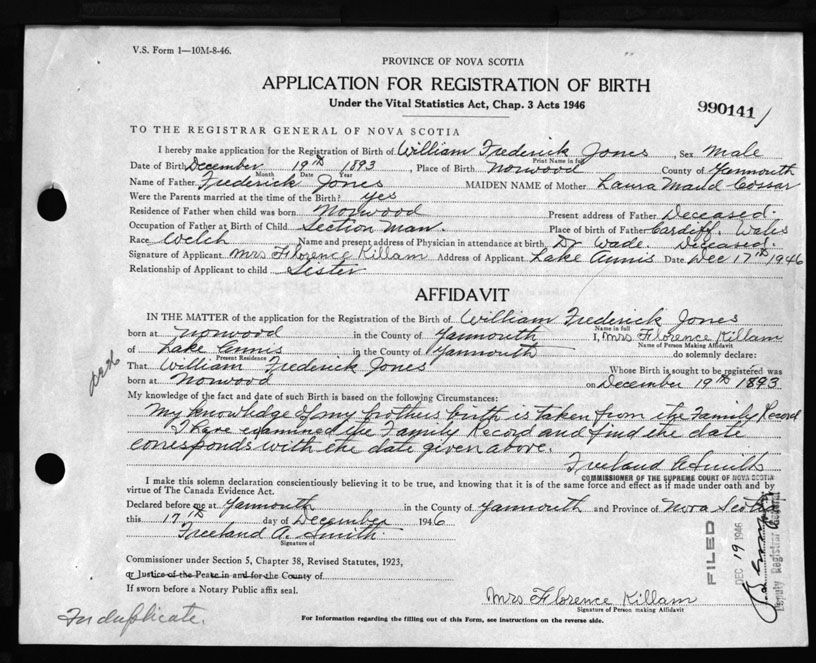 V.S. Form 1—10M-8-46.
PROVINCE OF NOVA SCOTIA
APPLICATION FOR REGISTRATION OF BIRTH
Under the Vital Statistics Act, Chap. 3 Acts 1946
990141
TO THE REGISTRAR GENERAL OF NOVA SCOTIA
I hereby make application for the Registration of Birth of William Frederick Jones, Sex Male
Print Name in full
Date of Birth December 19th 1893, Place of Birth Norwood County of Yarmouth
Month Date Year
Name of Father Frederick Jones MAIDEN NAME of Mother Laura Maud Cossar
Were the Parents married at the time of the Birth? yes
Residence of Father when child was born Norwood Present address of Father Deceased.
Occupation of Father at Birth of Child Section Man. Place of birth of Father Cardiff, Wales
Race Welch Name and present address of Physician in attendance at birth Dr Wade. Deceased.
Signature of Applicant Mrs Florence Killam Address of Applicant Lake Annis Date Dec 17th 1946
Relationship of Applicant to child Sister
AFFIDAVIT
IN THE MATTER of the application for the Registration of the Birth of William Frederick Jones
Name in full
born at Norwood in the County of Yarmouth I, Mrs Florence Killam
Name of Person Making Affidavit
of Lake Annis in the County of Yarmouth do solemnly declare:
Present Residence
That William Frederick Jones Whose Birth is sought to be registered was
born at Norwood on December 19th 1893
My knowledge of the fact and date of such Birth is based on the following Circumstances:
My knowledge of my brothers birth is taken from the Family Record
I have examined the Family Record and find the date
corresponds with the date given above.
Freeland A Smith
COMMISSIONER OF THE SUPREME COURT OF NOVA SCOTIA
I make this solemn declaration conscientiously believing it to be true, and knowing that it is of the same force and effect as if made under oath and by
virtue of The Canada Evidence Act.
Declared before me at Yarmouth in the County of Yarmouth and Province of Nova Scotia
this 17th day of December 1946
Freeland A. Smith.
Signature of
Commissioner under Section 5, Chapter 38, Revised Statutes, 1923,
or Justice of the Peace in and for the County of
If sworn before a Notary Public affix seal.
Mrs Florence Killam
Signature of Person making Affidavit
In duplicate.
For Information regarding the filling out of this Form, see instructions on the reverse side.
FILED
DEC 19 1946
Deputy Registrar General